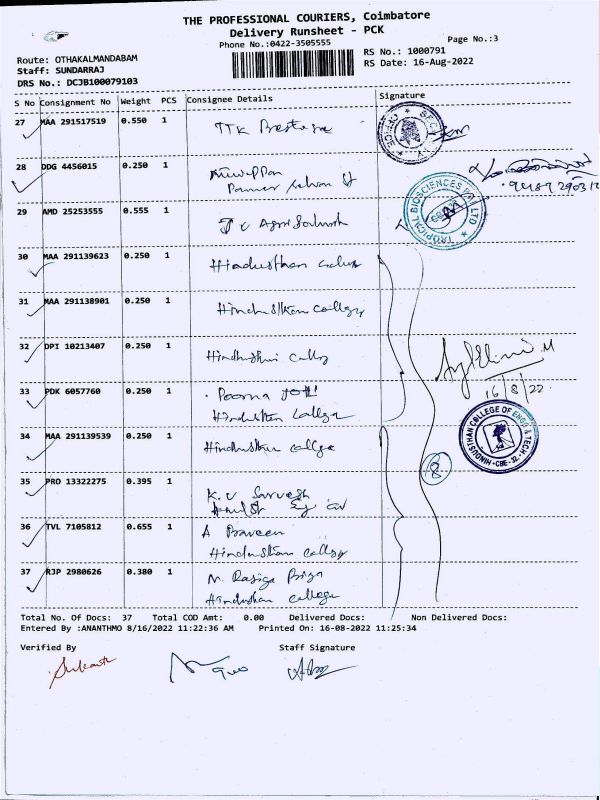 THE PROFESSIONAL COURIERS, Coimbatore
Delivery Runsheet - PCK
Phone No.:0422-3505555
Page No.:3
Route: OTHAKALMANDABAM
Staff: SUNDARRAJ
DRS No.: DCJB100079103
RS No.: 1000791
RS Date: 16-Aug-2022
S No Consignment No Weight PCS Consignee Details Signature
27 MAA 291517519 0.550 1
28 DDG 4456015 0.250 1
29 AMD 25253555 0.555 1
TROPICAL BIOSCIENCES LTD
30 MAA 291139623 0.250 1 Hindusthan
31 MAA 291138901 0.250 1 Hindusthan College
32 DPI 10213407 0.250 1
16/8/22
33 PDK 6057760 0.250 1 Poorna
Hindusthan College
HINDUSTHAN COLLEGE OF ENGG & TECH CBE-32
34 MAA 291139539 0.250 1 Hindusthan College
8
35 PRO 13322275 0.395 1 K.V Sarvesh
36 TVL 7105812 0.655 1 A Praveen
Hindusthan College
37 RJP 2980626 0.380 1 N. Rasiga Priya
Hindusthan College
Total No. Of Docs: 37 Total COD Amt: 0.00 Delivered Docs: Non Delivered Docs:
Entered By :ANANTHMO 8/16/2022 11:22:36 AM Printed On: 16-08-2022 11:25:34
Verified By Staff Signature